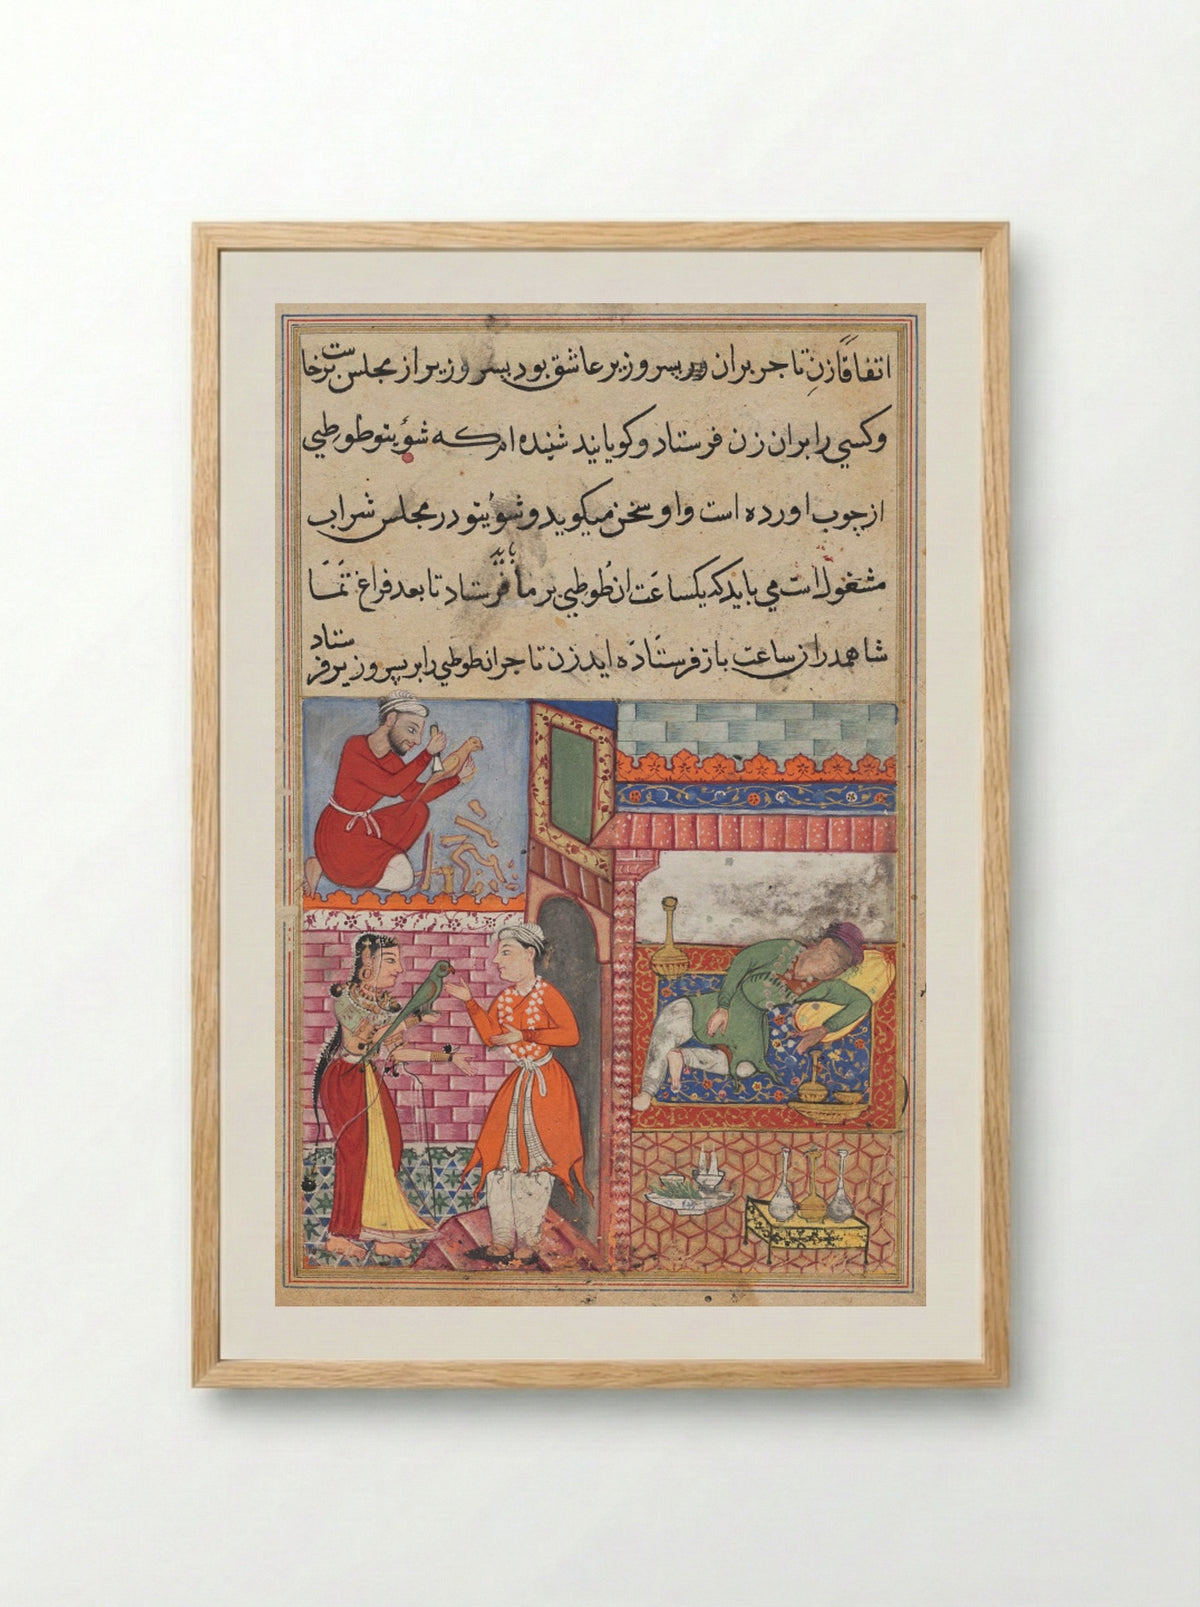 اتفاقًا زنِ تاجر بران پسر وزیر عاشق بود پسر وزیر از مجلس برخاست
وکسي را بران زن فرستاد وکویانید شنیده ام که شؤیتو طوطیي
از چوب اورده است واو سخن میکوید وشؤیتو در مجلس شراب
مشغول است مي باید که یکساعت ان طوطیي بر ما باید فرستاد تا بعد فراغ تماشا
شاهمدران ساعت باز فرستاده اید زن تاجر ان طوطیي را بر پسر وزیر فرستاد